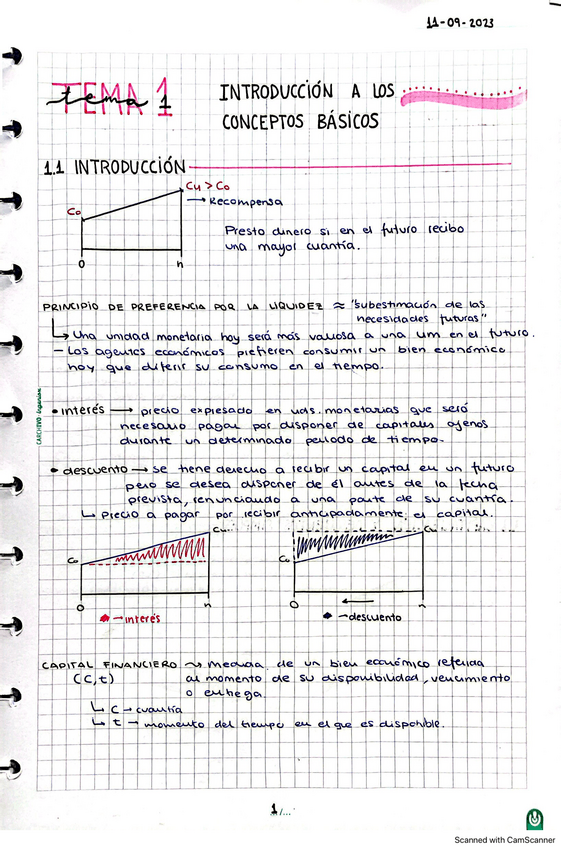 11-09-2023
TEMA 1
tema 1
INTRODUCCIÓN A LOS
CONCEPTOS BÁSICOS
1.1 INTRODUCCIÓN
Cu > Co
→ Recompensa
Co
Presto dinero si en el futuro recibo
una mayor cuantía.
0 n
PRINCIPIO DE PREFERENCIA POR LA LIQUIDEZ ≈ "subestimación de las
necesidades futuras"
↳ Una unidad monetaria hoy será más valiosa a una um en el futuro.
- Los agentes económicos prefieren consumir un bien económico
hoy que diferir su consumo en el tiempo.
• interés → precio expresado en uds. monetarias que será
necesario pagar por disponer de capitales ajenos
durante un determinado periodo de tiempo.
• descuento → se tiene derecho a recibir un capital en un futuro
pero se desea disponer de él antes de la fecha
prevista, renunciando a una parte de su cuantía.
↳ Precio a pagar por recibir anticipadamente el capital.
Cu
Cu
Co
Co
0 n
0 n
→ interés
→ descuento
CAPITAL FINANCIERO ~> Medida de un bien económico referida
(C,t) al momento de su disponibilidad, vencimiento
o entrega.
↳ C → cuantía
↳ t → momento del tiempo en el que es disponible.
1/...
Scanned with CamScanner